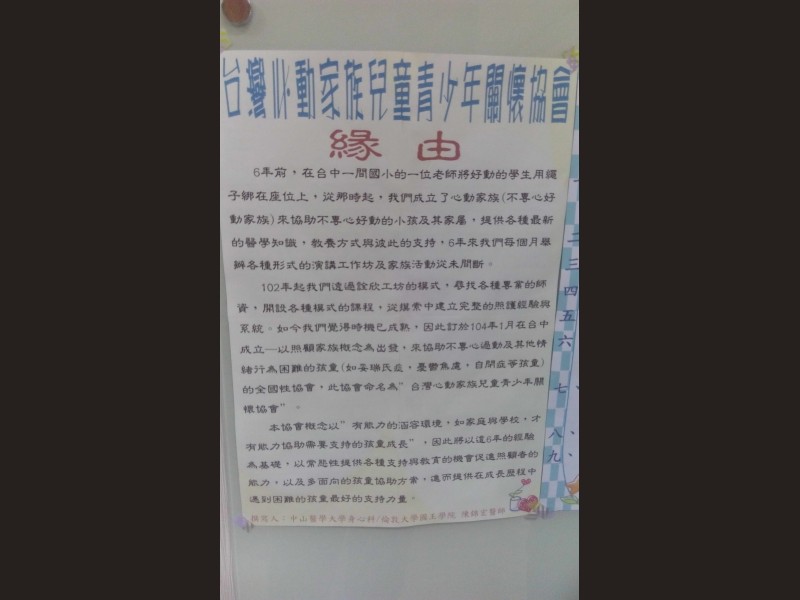 台灣心動家族兒童青少年關懷協會
緣由
6年前，在台中一間國小的一位老師將好動的學生用繩
子綁在座位上，從那時起，我們成立了心動家族(不專心好
動家族)來協助不專心好動的小孩及其家屬，提供各種最新
的醫學知識，教養方式與彼此的支持，6年來我們每個月舉
辦各種形式的演講工作坊及家族活動從未間斷。
102年起我們透過詮欣工坊的模式，尋找各種專業的師
資，開設各種模式的課程，從摸索中建立完整的照護經驗與
系統。如今我們覺得時機已成熟，因此訂於104年1月在台中
成立—以照顧家族概念為出發，來協助不專心過動及其他情
緒行為困難的孩童(如妥瑞氏症，憂鬱焦慮，自閉症等孩童)
的全國性協會，此協會命名為"台灣心動家族兒童青少年關
懷協會"。
本協會概念以"有能力的涵容環境，如家庭與學校，才
有能力協助需要支持的孩童成長"，因此將以這6年的經驗
為基礎，以常態性提供各種支持與教育的機會促進照顧者的
能力，以及多面向的孩童協助方案，進而提供在成長歷程中
遇到困難的孩童最好的支持力量。
撰寫人：中山醫學大學身心科/倫敦大學國王學院 陳錦宏醫師
二
三
四
五
六
七
八
九